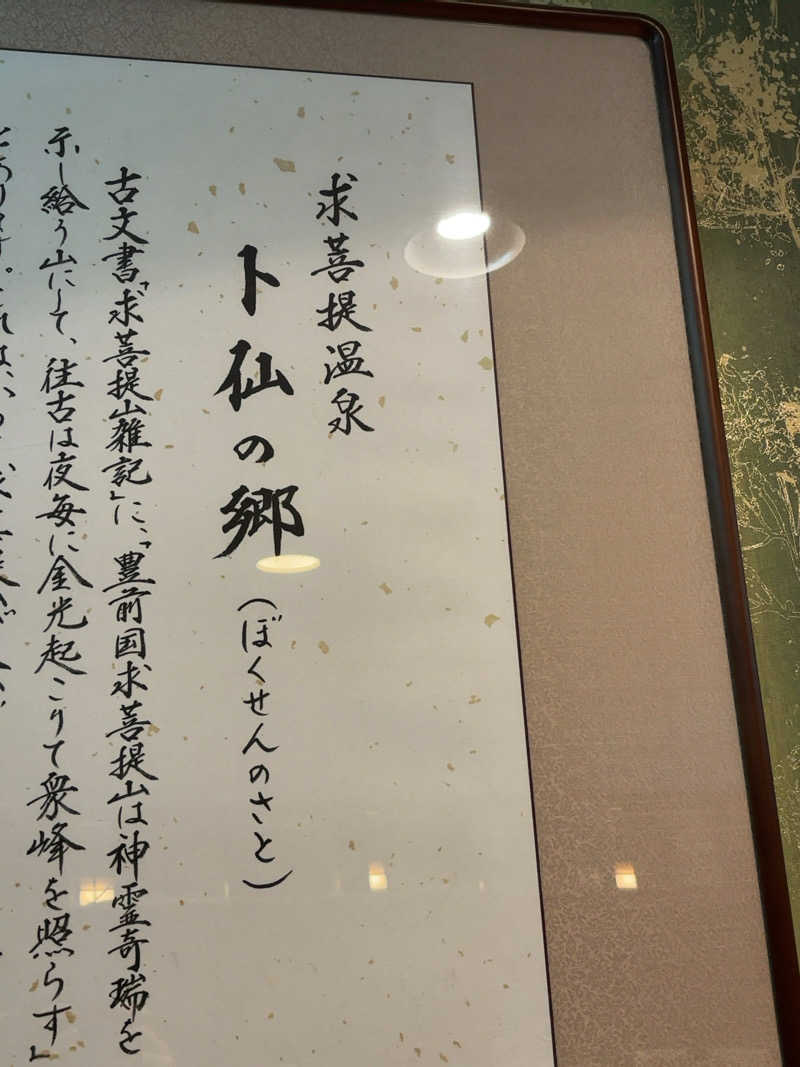 求菩提温泉
卜仙の郷
(ぼくせんのさと)
古文書「求菩提山雑記」に、「豊前国求菩提山は神霊奇瑞を
示し給う山にして、往古は夜毎に金光起こりて衆峰を照らす」
とあります。これは、